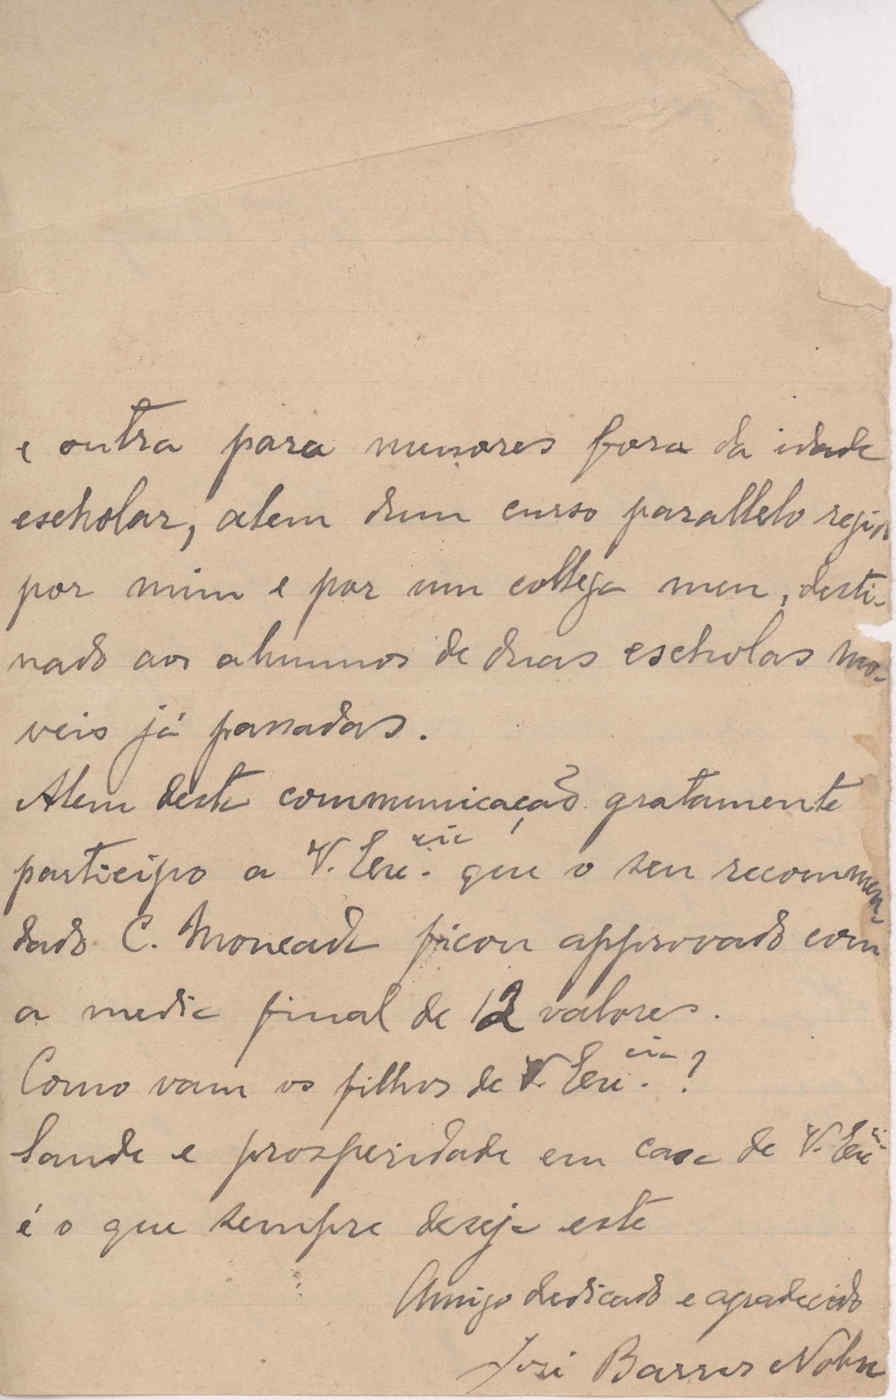 e outra para menores fora da idade
escholar, alem dum curso parallelo regido
por mim e por um collega meu, desti-
nado aos alumnos de duas escholas mo-
veis já passadas.
Alem desta communicação gratamente
participo a V. Exc.cia que o seu recommen-
dado C. Moncada ficou approvado com
a media final de 12 valores.
Como vam os filhos de V. Exc.cia?
Saude e prosperidade em casa de V. Exc.cia
é o que sempre deseja este
Amigo dedicado e agradecido
José Barros Nobre